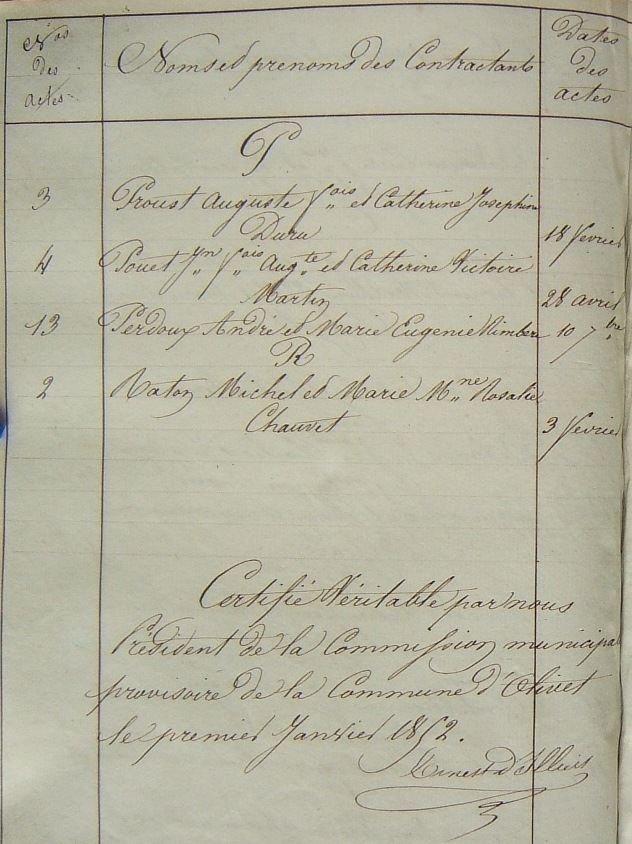 Nos des actes
Noms et prenoms des Contractants
Dates des actes
P
3 Proust Auguste fois et Catherine Josephine
Duru 18 fevrier
4 Pouet Jn fois Augte et Catherine Victoire
Martin 28 avril
13 Perdoux André et Marie Eugenie Rimbert 10 7bre
R
2 Raton Michel et Marie Mne Rosalie
Chauvet 3 fevrier
Certifié Véritable par nous
Président de la Commission municipale
provisoire de la Commune d'Olivet
le premier Janvier 1852.
Ernest d'Illiers